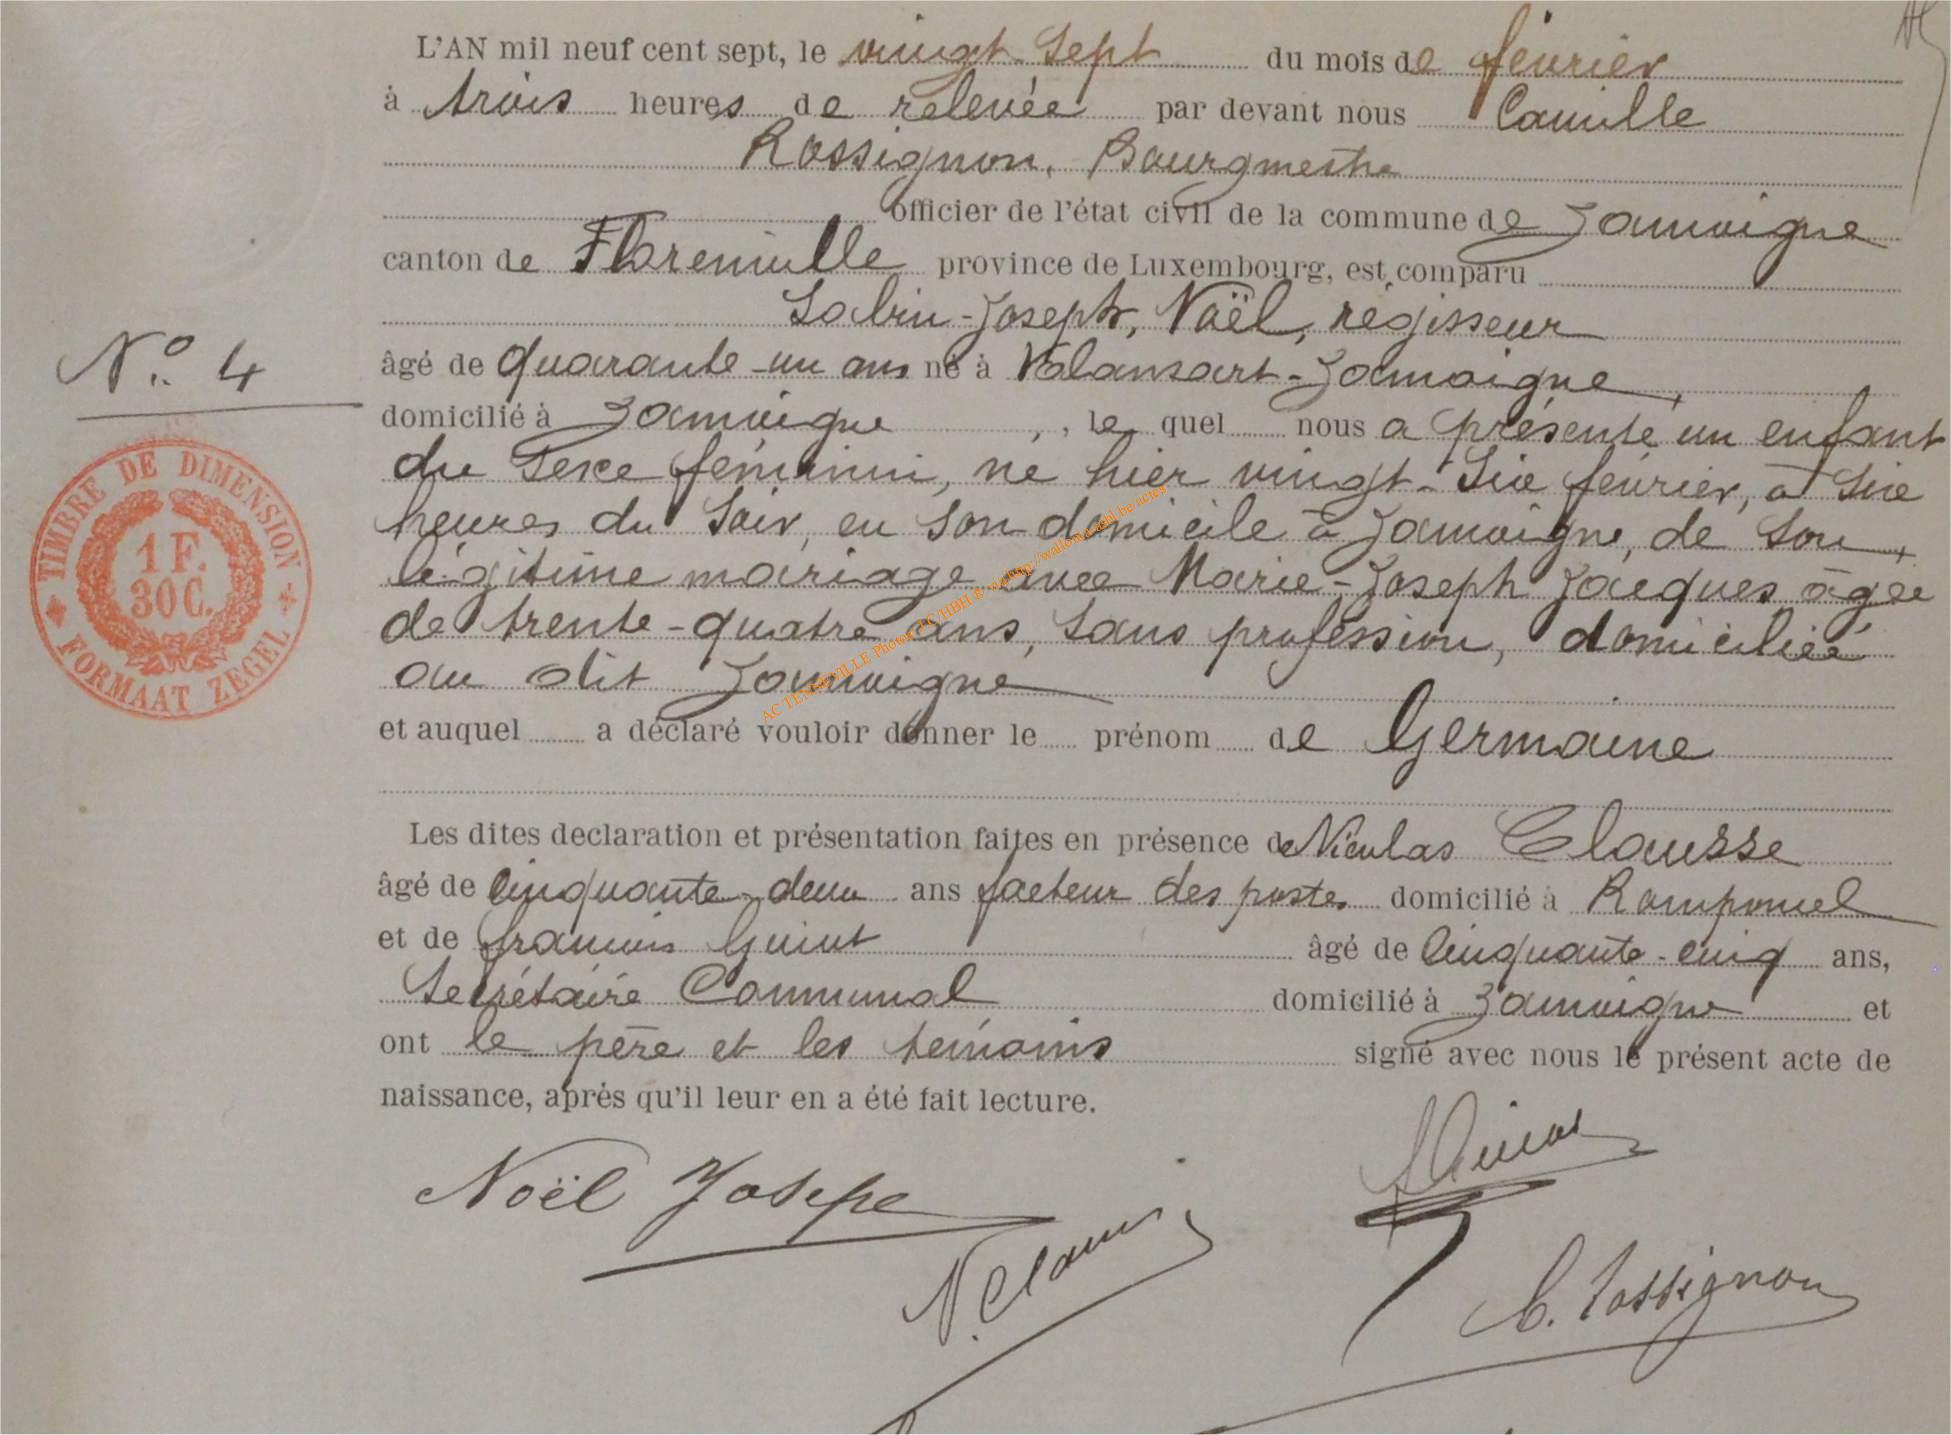 L'AN mil neuf cent sept, le vingt-sept du mois de février
à trois heures de relevée par devant nous Camille
Rossignon, Bourgmestre
officier de l'état civil de la commune de Jamoigne
canton de Florenville province de Luxembourg, est comparu
Sabin-Joseph, Noël, régisseur
âgé de quarante-un ans né à Valansart-Jamoigne,
domicilié à Jamoigne, le quel nous a présenté un enfant
du sexe féminin, né hier vingt-six février, à six
heures du soir, en son domicile à Jamoigne, de son
légitime mariage avec Marie-Joseph Jacques âgée
de trente-quatre ans, sans profession, domiciliée
au dit Jamoigne
et auquel a déclaré vouloir donner le prénom de Germaine
Les dites declaration et présentation faites en présence de Nicolas Clausse
âgé de cinquante-deux ans facteur des postes domicilié à Romponcel
et de françois Guiot âgé de cinquante-cinq ans,
Secrétaire Communal domicilié à Jamoigne et
ont le père et les témoins signé avec nous le présent acte de
naissance, après qu'il leur en a été fait lecture.
Nº 4
TIMBRE DE DIMENSION
1 F.
30 C.
FORMAAT ZEGEL
Noël Josephe
N. Clausse
C. Rossignon